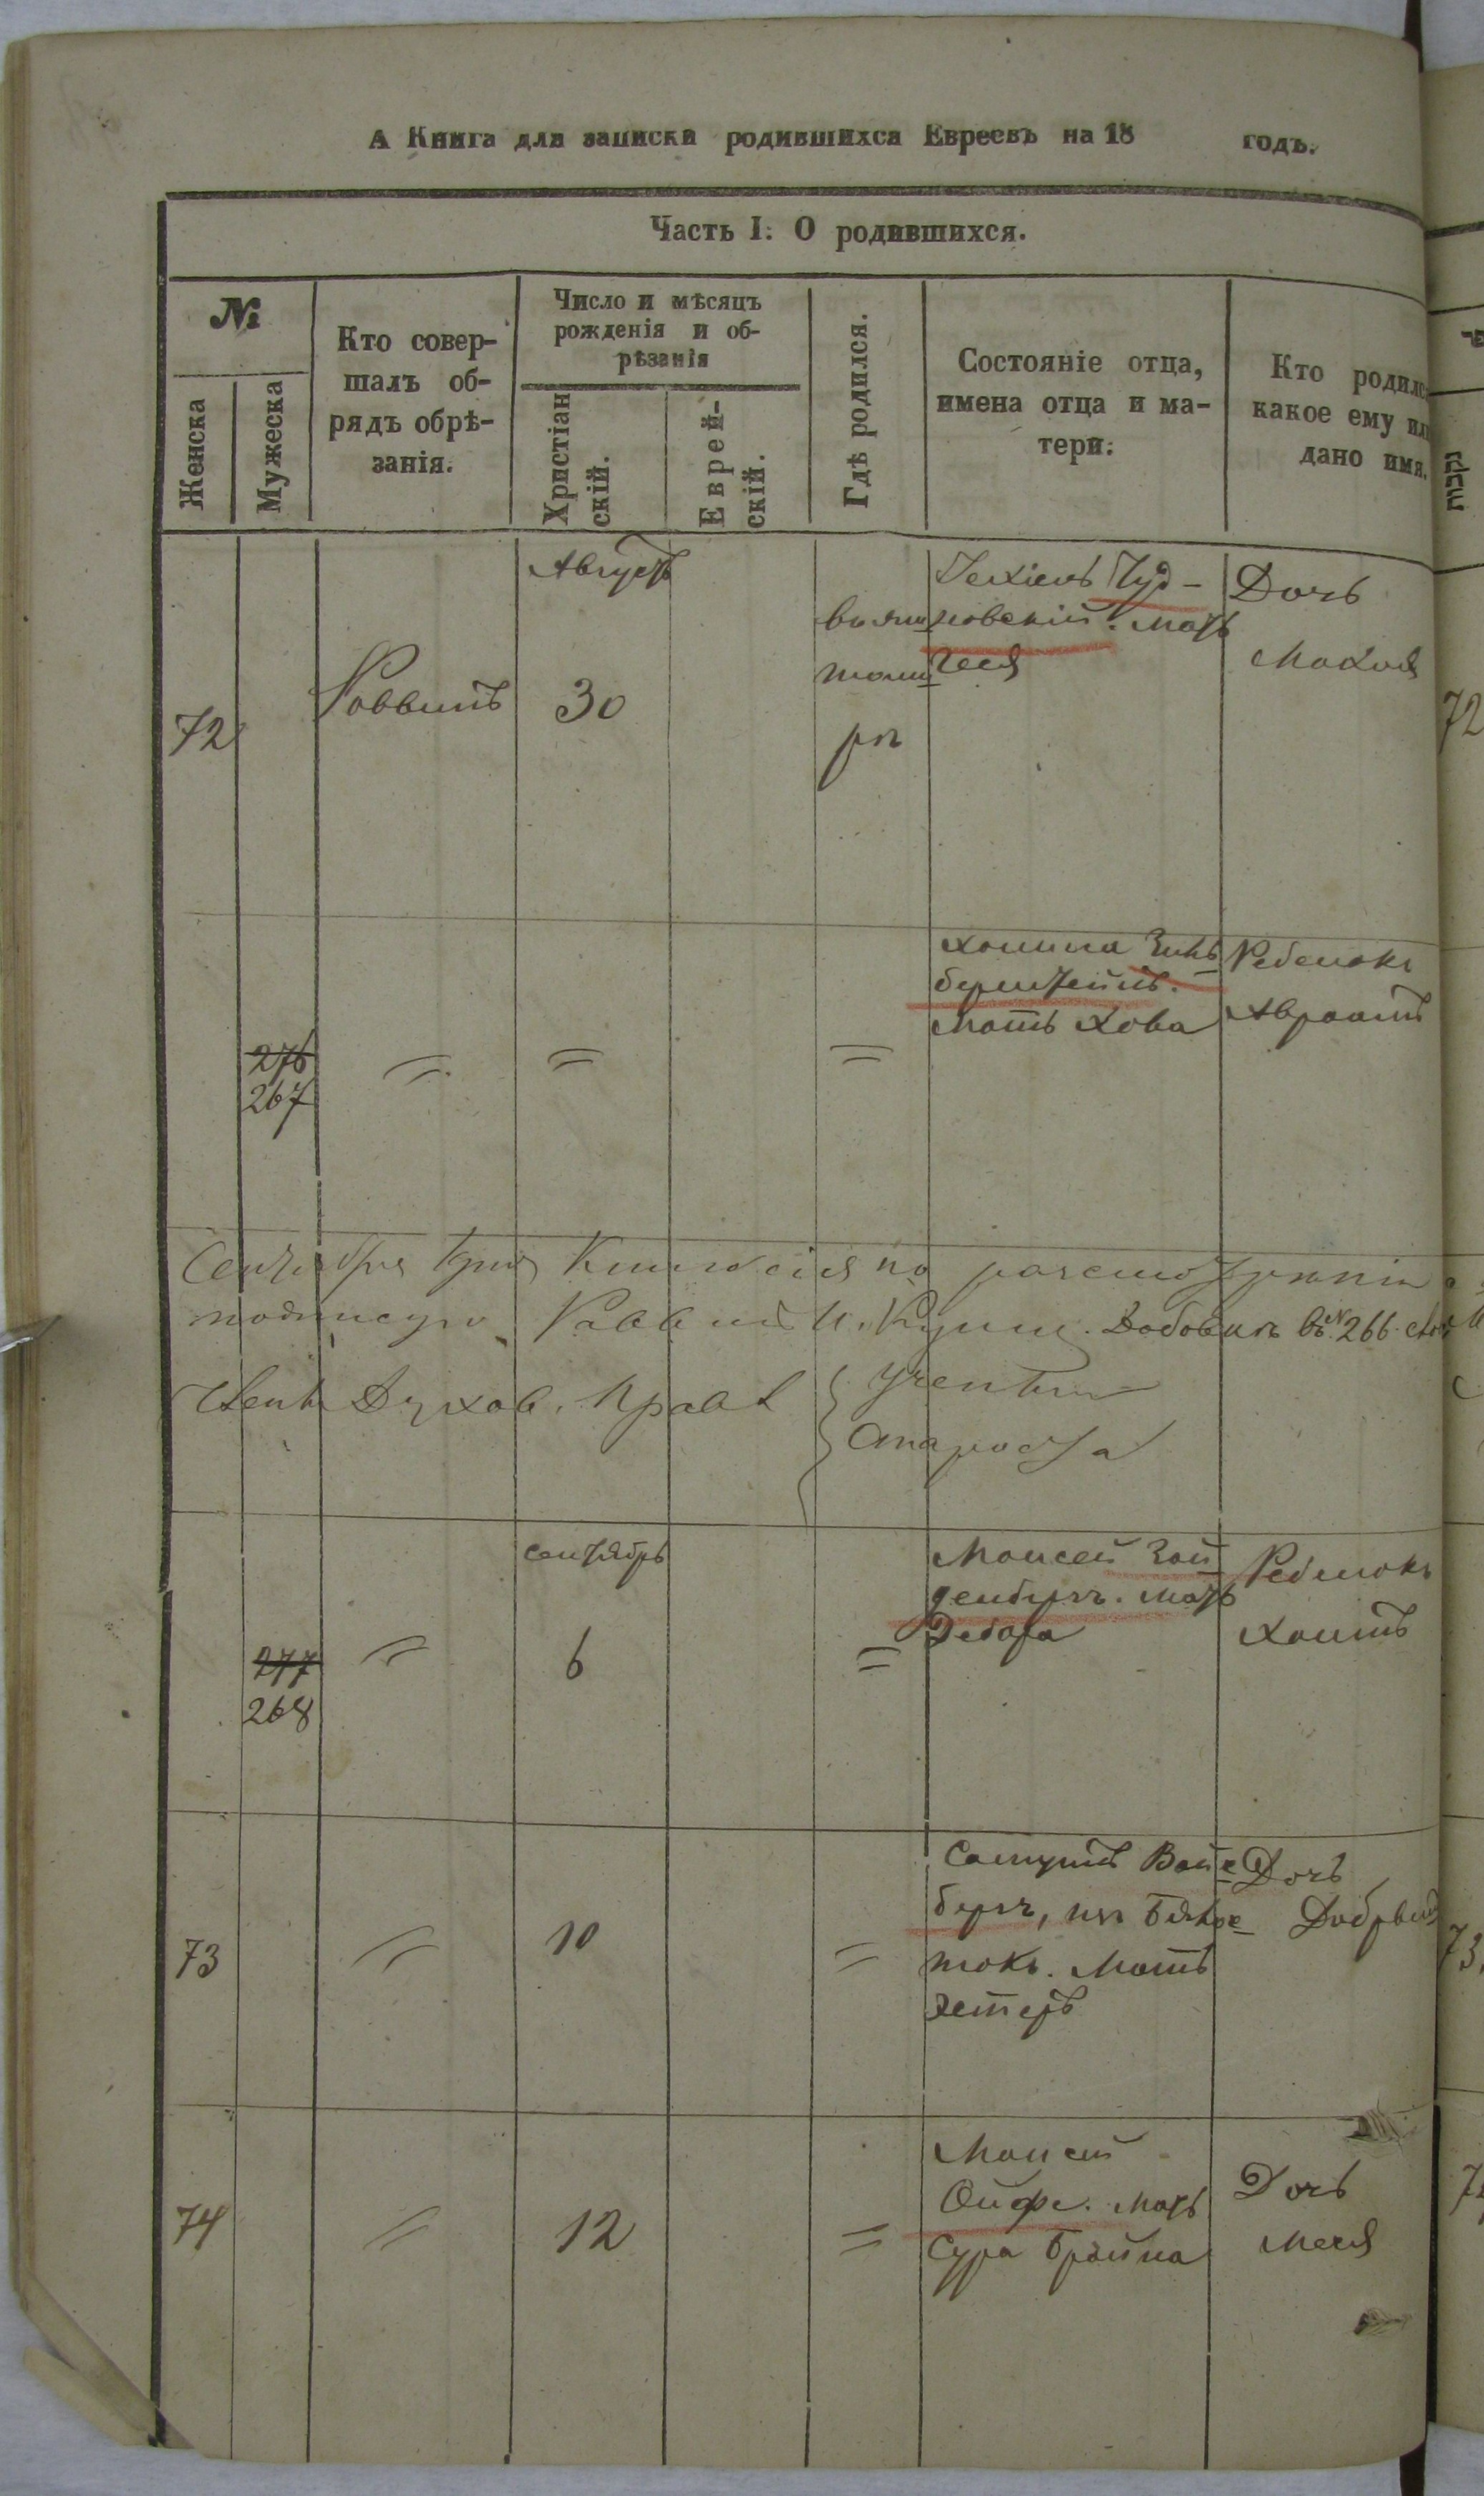 А Книга для записки родившихся Евреевъ на 18 годъ.
Часть I. О родившихся.
№
Женска
Мужеска
Кто совер-
шалъ об-
рядъ обрѣ-
занія.
Число и мѣсяцъ
рожденія и об-
рѣзанія
Христіан
скій.
Еврей-
скій.
Гдѣ родился.
Состояніе отца,
имена отца и ма-
тери.
Кто родилс
какое ему ил
дано имя.
72
Раввинъ
Августъ
30
въ жи
томи
рѣ
Іехіель Чуд-
новскій. мать
Геся
Дочь
Махля
72
276
267
=
=
=
Хаима Зиль
берштейнъ.
Мать Хова
Ребенокъ
Авраамъ
Сентября по
подписую Раввинъ И. Добовилъ въ № 266
Членъ Духов. Правл
Ученый
Староста
277
268
=
Сентябрь
6
=
Моисей Зай
денбергъ. мать
Дебора
Ребенокъ
Хаимъ
73
=
10
=
Самуилъ Вайс
бергъ, изъ
токъ. Мать
Эстеръ
Дочь
73.
74
=
12
=
Моисей
Ойфе. мать
Сура Брайна
Дочь
Мехя